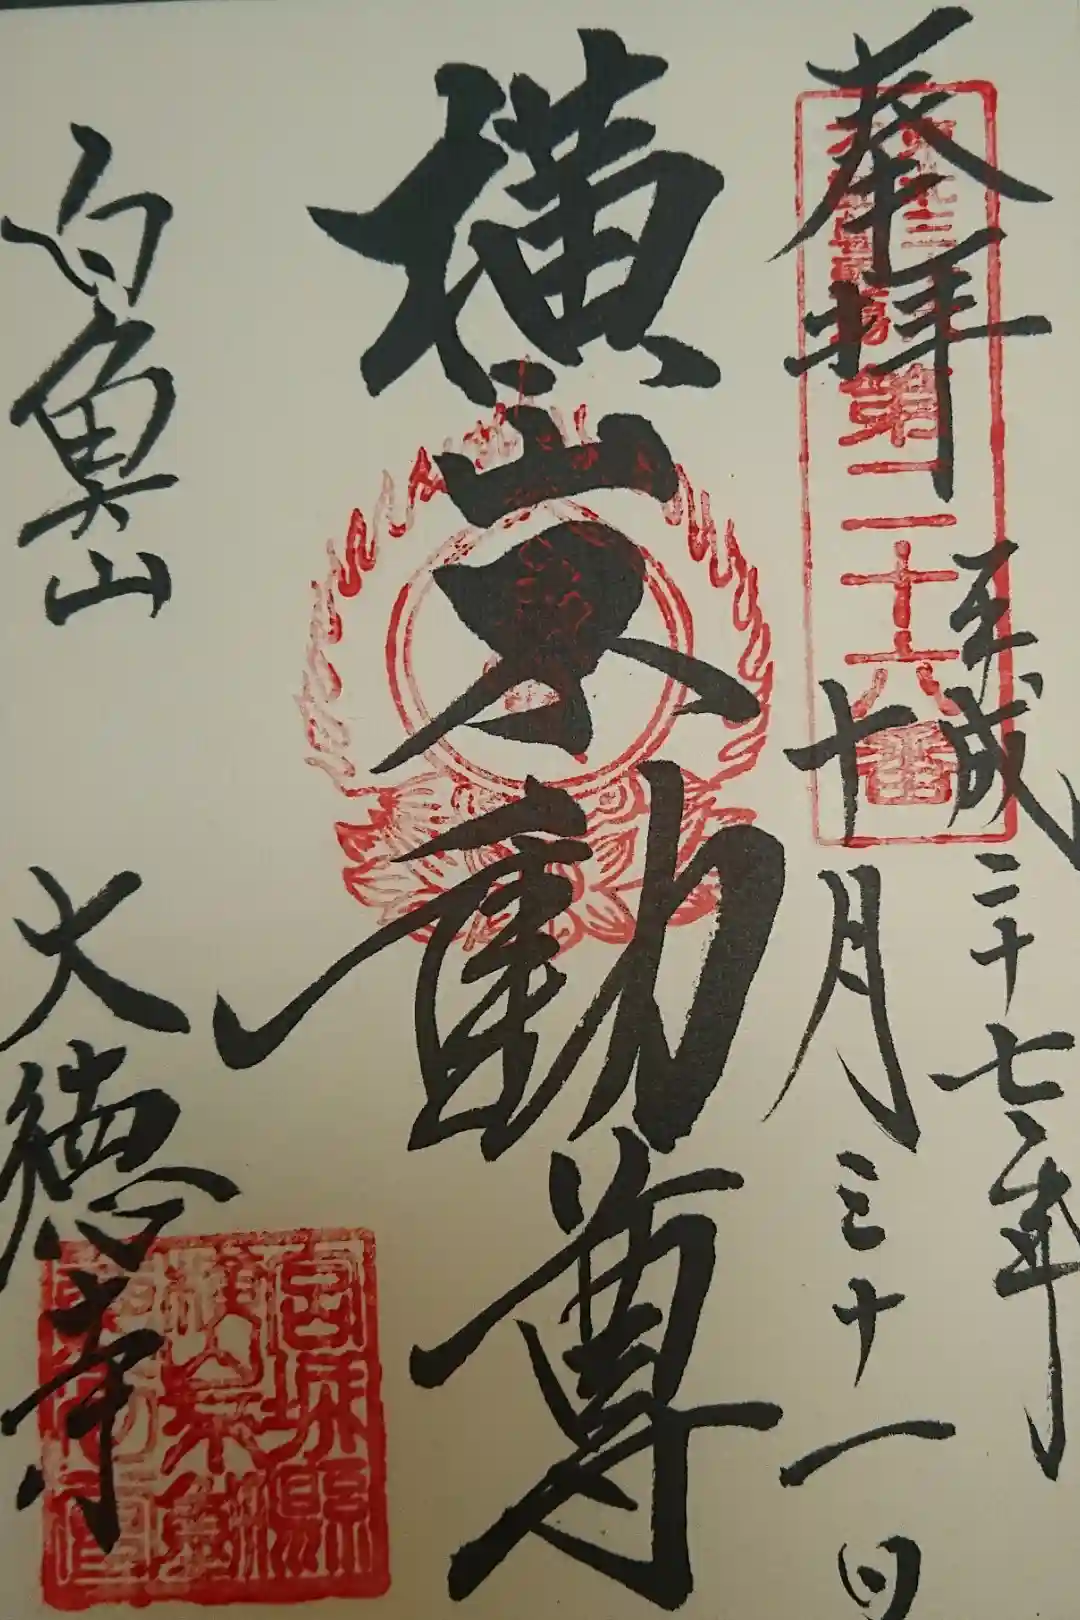 奉拝
平成二十七年
十月三十一日
第二十六番
横山不動尊
白魚山
大徳寺
宮城県
横山不動